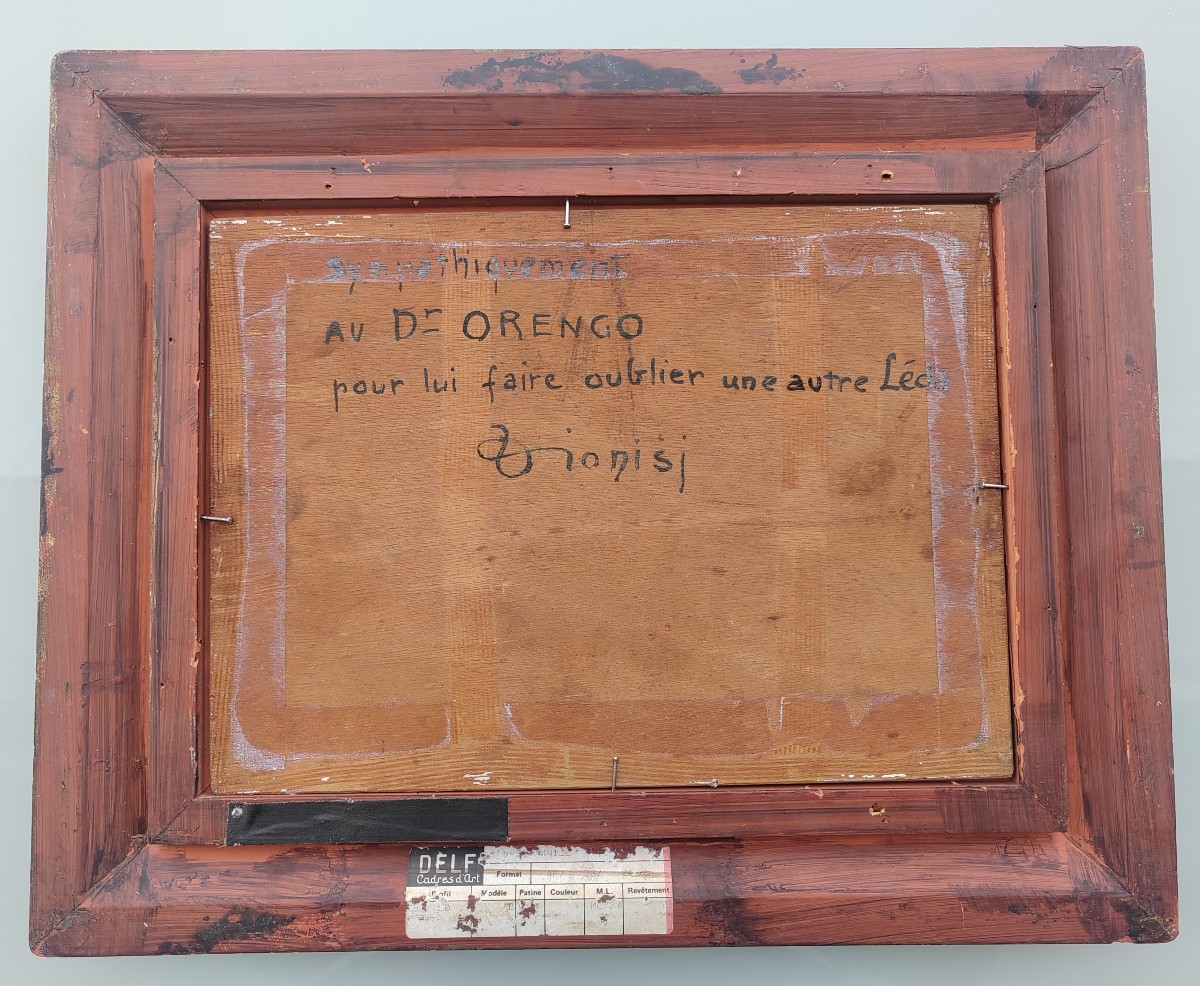 sympathiquement
AU Dr ORENGO
pour lui faire oublier une autre Léda
Dionisj
DELF
Cadres d'Art
Format
Profil Modèle Patine Couleur M.L. Revêtement